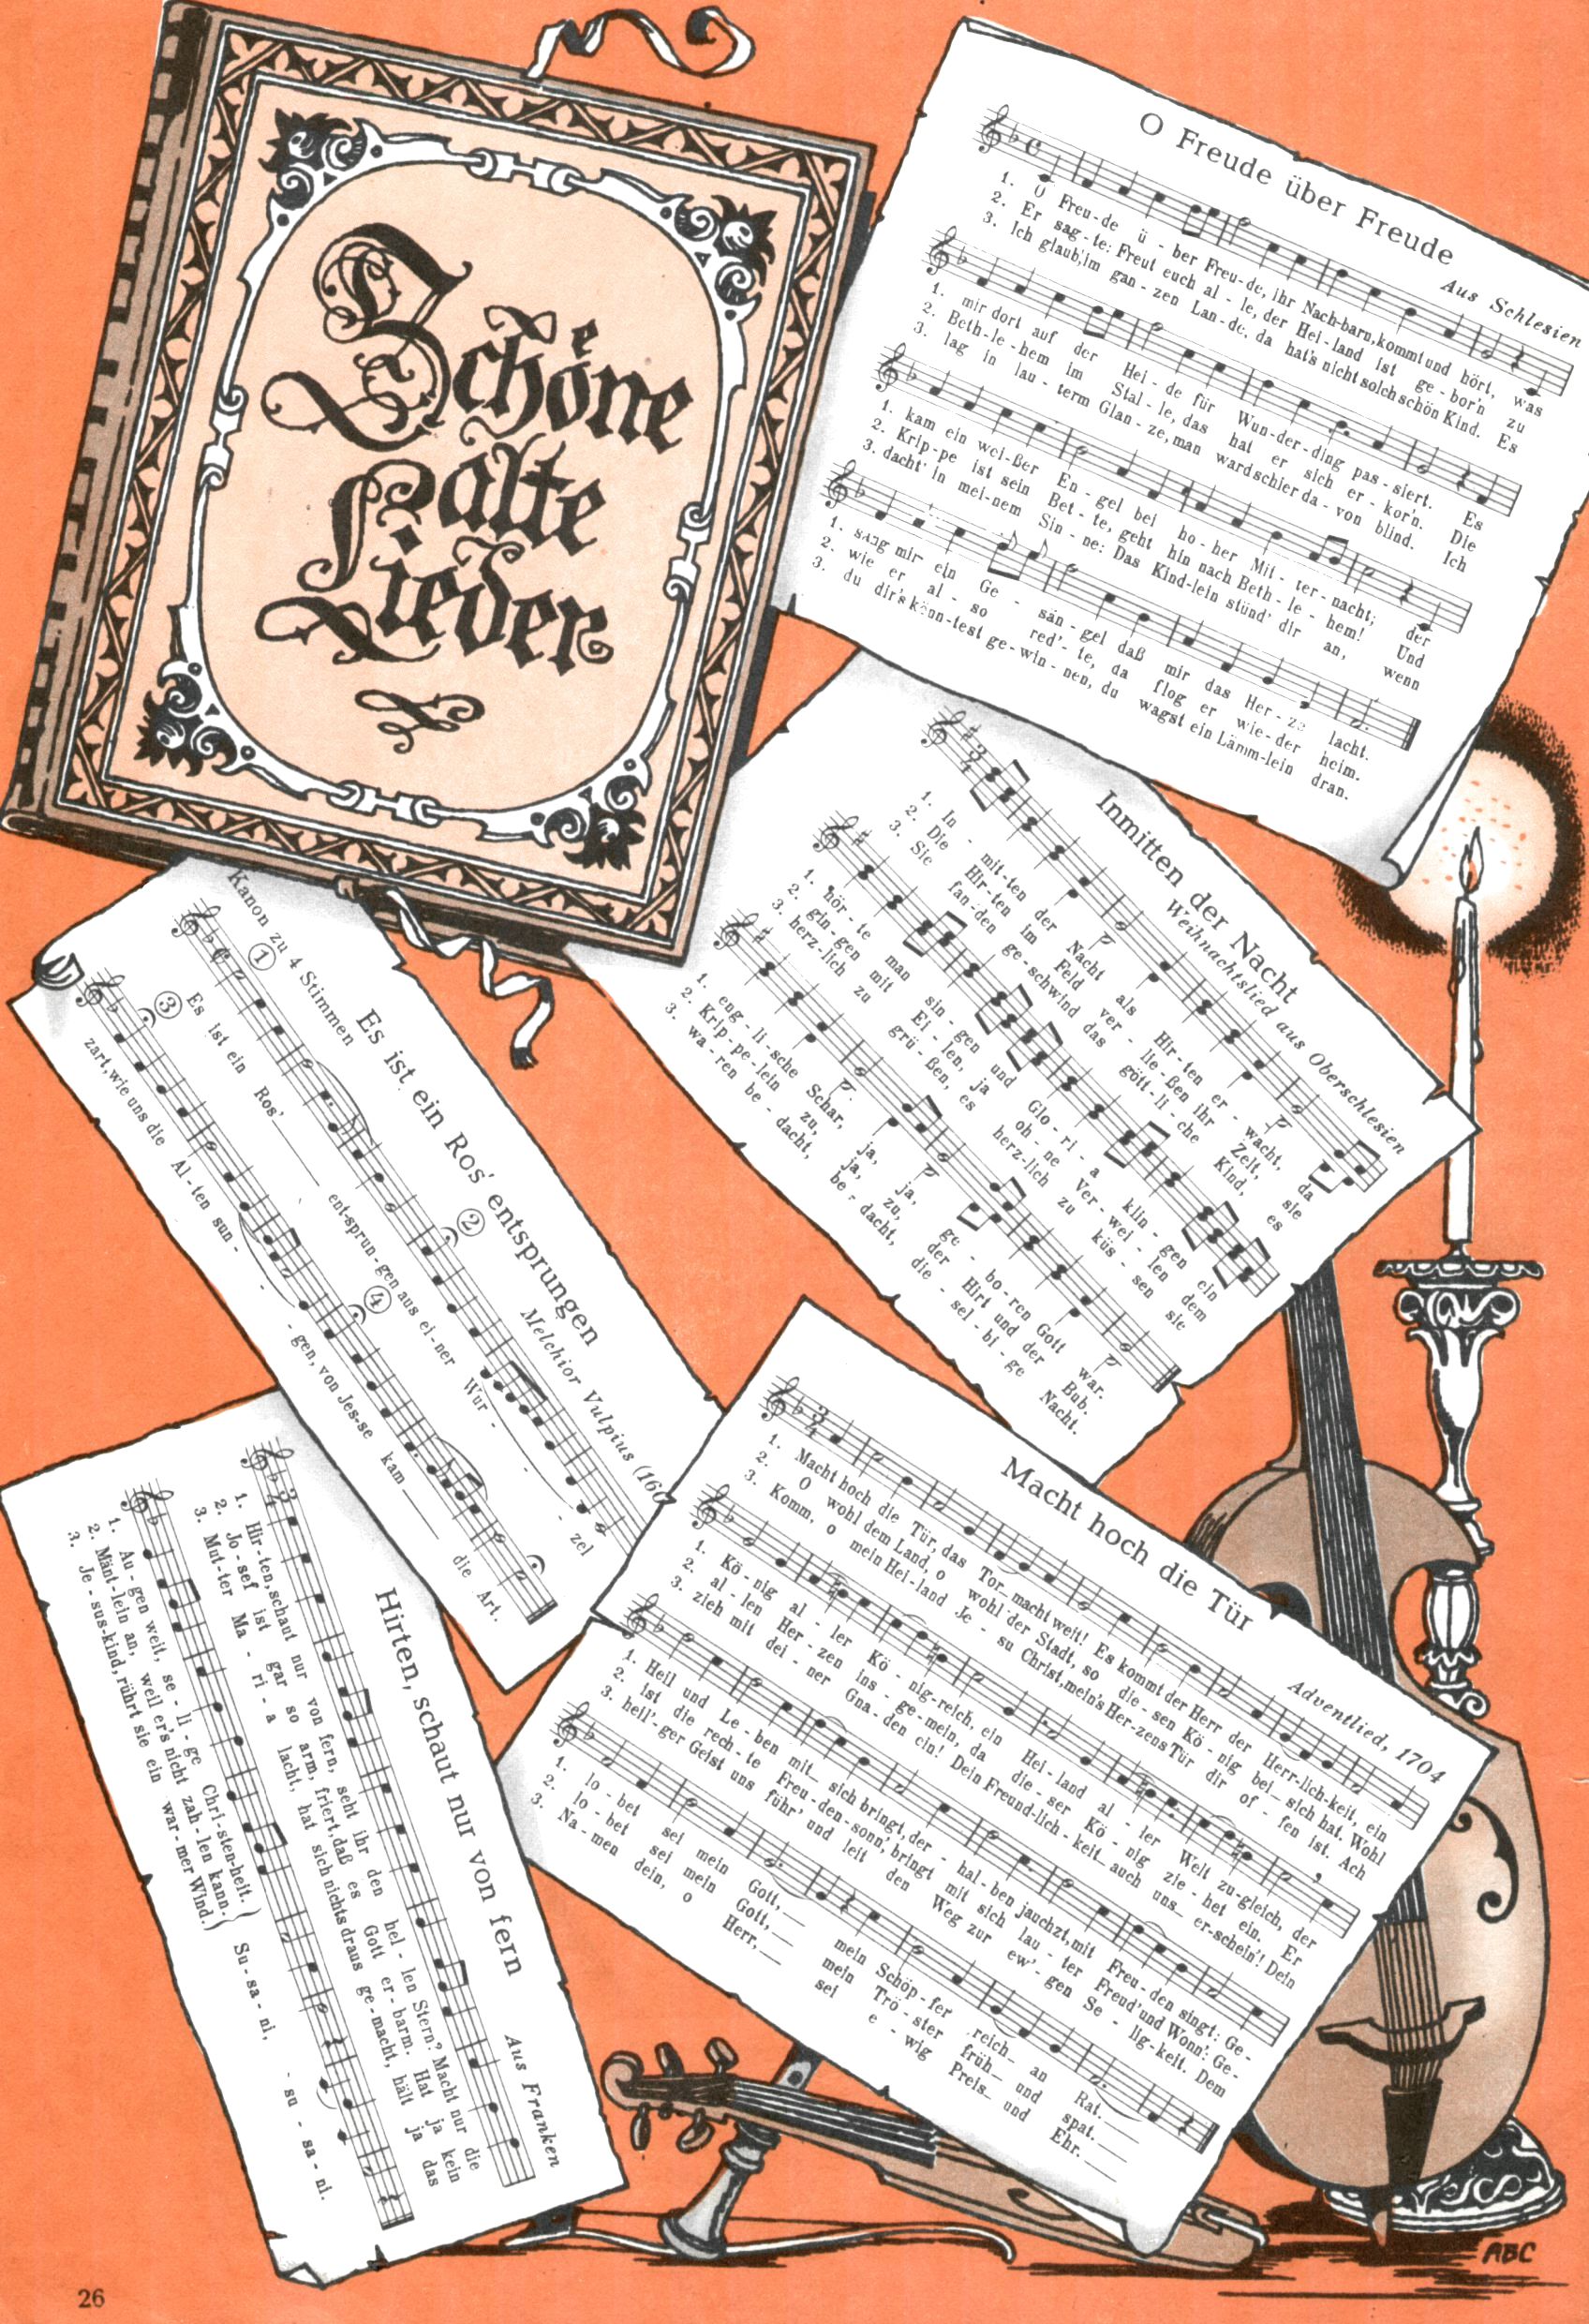 Schöne
alte
Lieder
O Freude über Freude
Aus Schlesien
1. O Freu-de ü - ber Freu-de, ihr Nach-barn, kommt und hört, was
2. Er sag-te: Freut euch al - le, der Hei-land ist ge - bor'n zu
3. Ich glaub', im gan - zen Lan-de, da hat's nicht solch schön Kind. Es
1. mir dort auf der Hei - de für Wun-der-ding pas - siert. Es
2. Beth-le-hem im Stal - le, das hat er sich er - kor'n. Die
3. lag in lau - term Glan - ze, man ward schier da - von blind. Ich
1. kam ein wei-ßer En - gel bei ho - her Mit - ter - nacht; der
2. Krip-pe ist sein Bet - te, geht hin nach Beth - le - hem! Und
3. dacht' in mei-nem Sin - ne: Das Kind-lein stünd' dir an, wenn
1. sang mir ein Ge - sän - gel daß mir das Her - ze lacht.
2. wie er al - so red' - te, da flog er wie - der heim.
3. du dir's könn-test ge-win - nen, du wagst ein Lämm-lein dran.
Inmitten der Nacht
Weihnachtslied aus Oberschlesien
1. In - mit-ten der Nacht als Hir-ten er - wacht, da
2. Die Hir-ten im Feld ver - lie-ßen ihr Zelt, sie
3. Sie fan-den ge-schwind das gött-li-che Kind, es
1. hör - te man sin-gen und Glo-ri-a klin-gen ein
2. gin-gen mit Ei-len, ja oh-ne Ver-wei-len dem
3. herz-lich zu grü-ßen, es herz-lich zu küs-sen sie
1. eng-li-sche Schar, ja, ja, ge-bo-ren Gott war.
2. Krip-pe-lein zu, ja, zu, der Hirt und der Bub.
3. wa-ren be-dacht, be-dacht, die-sel-bi-ge Nacht.
Es ist ein Ros' entsprungen
Kanon zu 4 Stimmen
Melchior Vulpius (160
1
2
Es ist ein Ros' ent-sprun-gen aus ei-ner Wur - - zel
3
4
zart, wie uns die Al-ten sun - - - gen, von Jes-se kam die Art.
Macht hoch die Tür
Adventlied, 1704
1. Macht hoch die Tür, das Tor macht weit! Es kommt der Herr der Herr-lich-keit, ein
2. O wohl dem Land, o wohl der Stadt, so die-sen Kö-nig bei sich hat. Wohl
3. Komm, o mein Hei-land Je - su Christ, mein's Her-zens Tür dir of - fen ist. Ach
1. Kö-nig al - ler Kö - nig-reich, ein Hei-land al - ler Welt zu-gleich, der
2. al-len Her-zen ins - ge-mein, da die-ser Kö - nig zie - het ein. Er
3. zieh mit dei - ner Gna-den ein! Dein Freund-lich-keit auch uns er-schein'! Dein
1. Heil und Le-ben mit sich bringt, der - hal-ben jauchzt, mit Freu-den singt: Ge-
2. ist die rech-te Freu-den-sonn', bringt mit sich lau - ter Freud' und Wonn': Ge-
3. heil'-ger Geist uns führ' und leit den Weg zur ew'-gen Se - lig-keit. Dem
1. lo - bet sei mein Gott, mein Schöp-fer reich an Rat.
2. lo - bet sei mein Gott, mein Trö-ster früh und spat.
3. Na - men dein, o Herr, sei e - wig Preis und Ehr.
Hirten, schaut nur von fern
Aus Franken
1. Hir-ten, schaut nur von fern, seht ihr den hel - len Stern? Macht nur die
2. Jo-sef ist gar so arm, friert, daß es Gott er-barm. Hat ja kein
3. Mut-ter Ma - ri - a lacht, hat sich nichts draus ge-macht, hält ja das
1. Au-gen weit, se - li - ge Chri-sten-heit. Su - sa - ni, - su - sa - ni.
2. Mänt-lein an, weil er's nicht zah-len kann.
3. Je-sus-kind, rührt sie ein war-mer Wind.
ABC
26